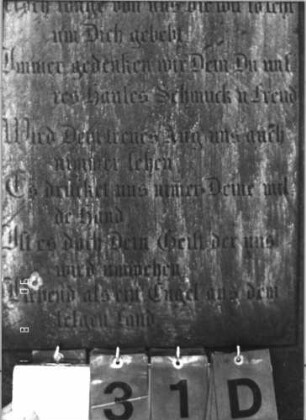 um Dich gebebt
Immer gedenken wir Dein Du uns
res Hauses Schmuck u Freud
Wird Dein treues Aug uns auch
nimmer sehen
Es drücket uns immer Deine mil
de Hand
Ist es doch Dein Geist der uns
wird umwehen
Liebend als ein Engel aus dem
selgen Land
8 06
3 1 D